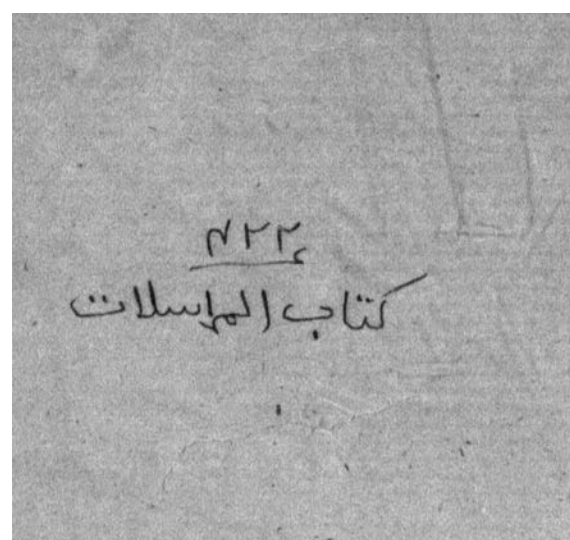 كتاب المراسلات